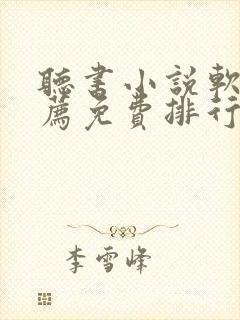 聽書小說軟
薦免費排行
李雪峰